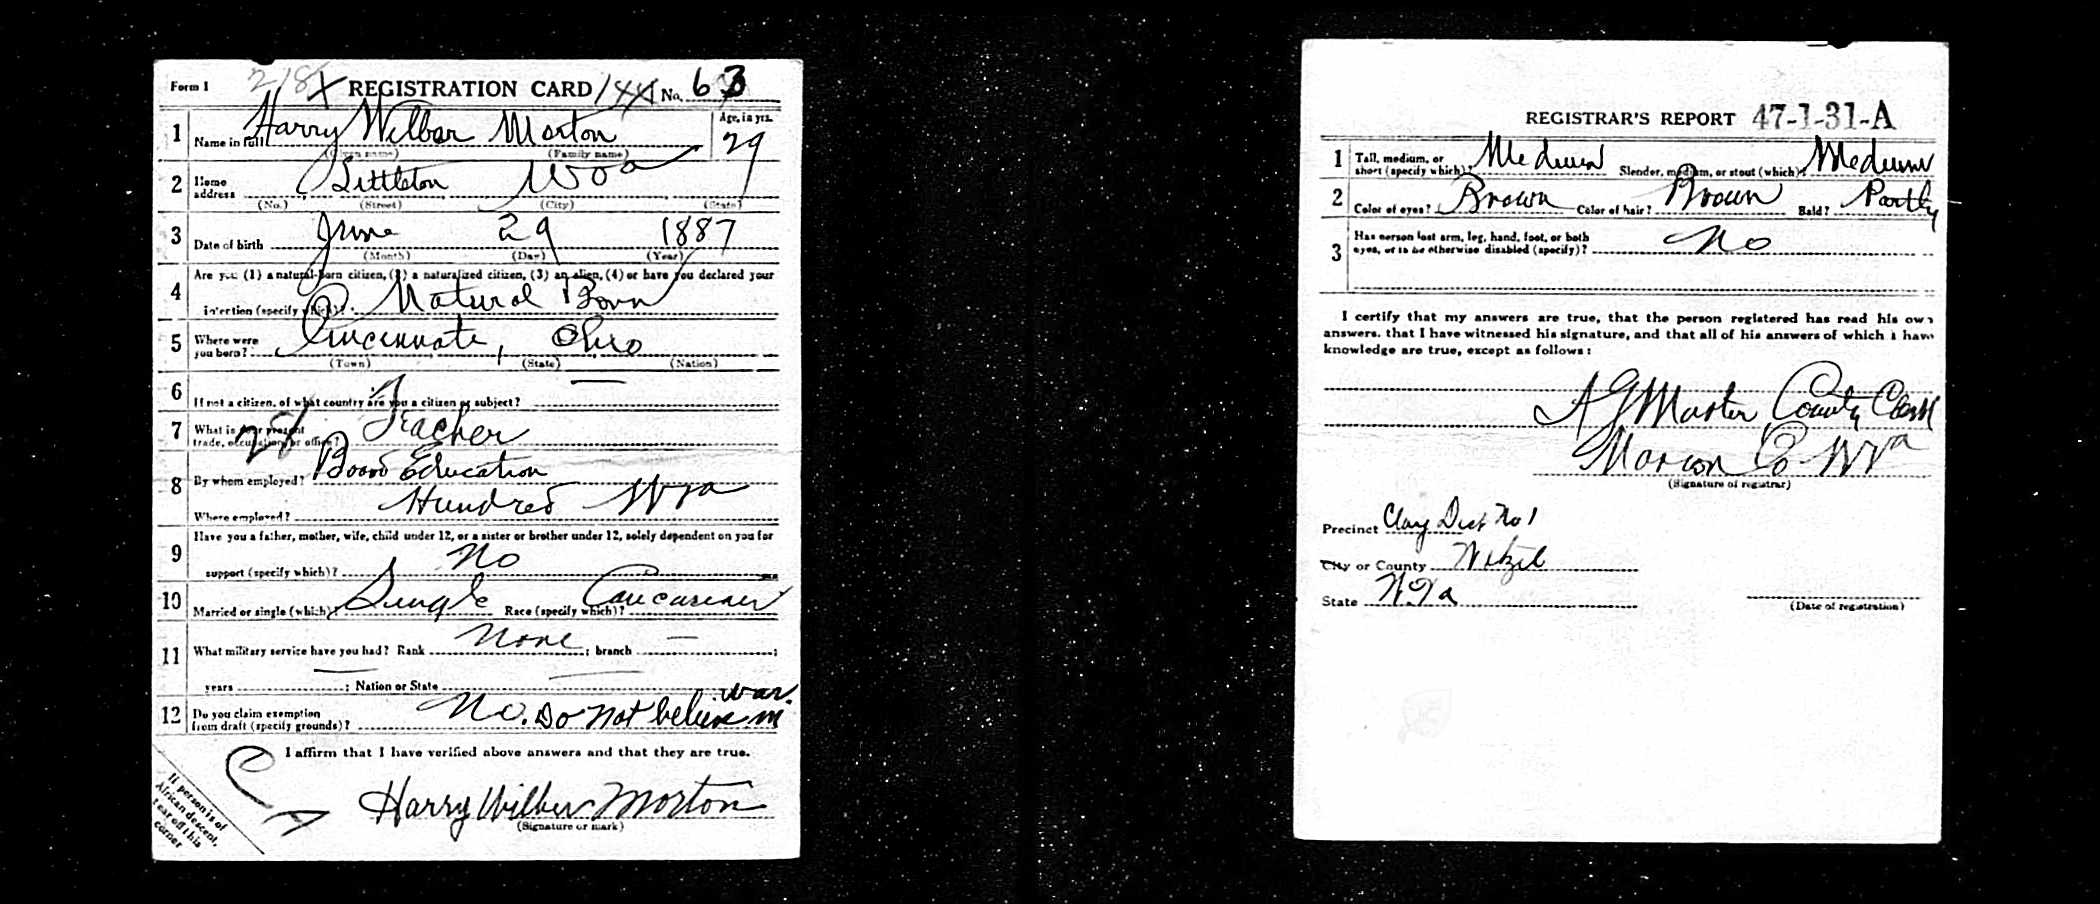 Form 1 218 REGISTRATION CARD 144 No. 63
1 Name in full Harry Wilbur Morton Age, in yrs. 29
(Given name) (Family name)
2 Home address Littleton W Va
(No.) (Street) (City) (State)
3 Date of birth June 29 1887
(Month) (Day) (Year)
4 Are you (1) a natural-born citizen, (2) a naturalized citizen, (3) an alien, (4) or have you declared your
intention (specify which)? Natural Born
5 Where were you born? Cincinnati, Ohio
(Town) (State) (Nation)
6 If not a citizen, of what country are you a citizen or subject? —
7 What is your present trade, occupation, or office? Teacher
28
8 By whom employed? Board Education
Where employed? Hundred W Va
9 Have you a father, mother, wife, child under 12, or a sister or brother under 12, solely dependent on you for
support (specify which)? No
10 Married or single (which)? Single Race (specify which)? Caucasian
11 What military service have you had? Rank None ; branch — ;
years — ; Nation or State —
12 Do you claim exemption from draft (specify grounds)? No. Do not believe in war.
I affirm that I have verified above answers and that they are true.
Harry Wilbur Morton
(Signature or mark)
If person is of
African descent,
tear off this
corner
REGISTRAR'S REPORT 47-1-31-A
1 Tall, medium, or short (specify which)? Medium Slender, medium, or stout (which)? Medium
2 Color of eyes? Brown Color of hair? Brown Bald? Partly
3 Has person lost arm, leg, hand, foot, or both
eyes, or is he otherwise disabled (specify)? No
I certify that my answers are true, that the person registered has read his own
answers, that I have witnessed his signature, and that all of his answers of which I have
knowledge are true, except as follows:
A G Martin County Clerk
Marion Co W Va
(Signature of registrar)
Precinct Clay Dist No 1
City or County Wetzel
State W. Va
(Date of registration)